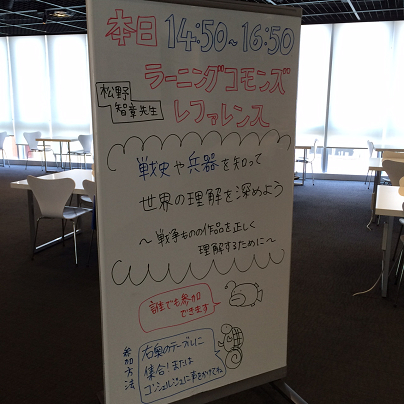 本日 14:50~16:50
ラーニングコモンズ
レファレンス
松野
智章先生
戦史や兵器を知って
世界の理解を深めよう
~戦争ものの作品を正しく
理解するために~
誰でも参加
できます
参加方法
右奥のテーブルに
集合!または
コンシェルジュに声をかけてね